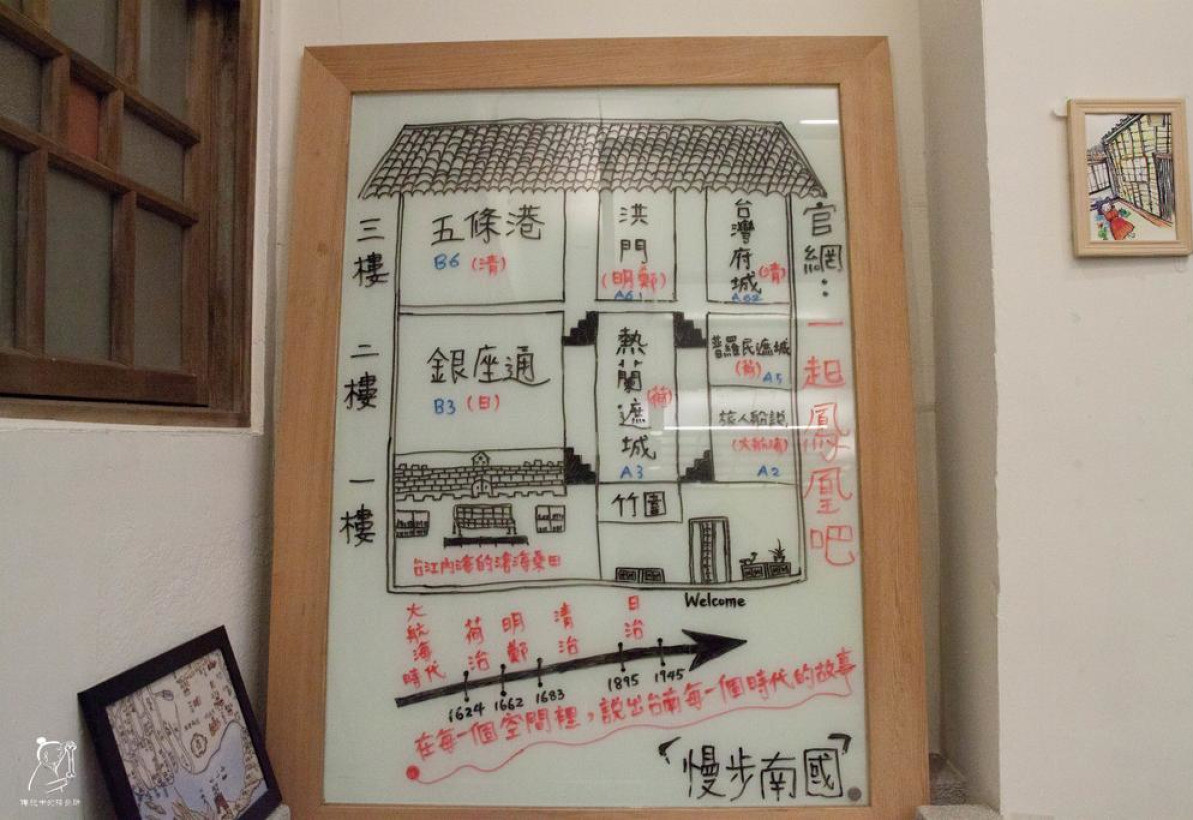 三樓
五條港
B6 (清)
洪門
(明鄭)
A61
台灣府城
(清)
A62
官網：一起鳳凰吧
二樓
銀座通
B3 (日)
熱蘭遮城
(荷)
A3
普羅民遮城
(荷)
A5
旅人船說
(大航海)
A2
一樓
竹園
台江內海的滄海桑田
Welcome
大航海時代
荷治
明鄭
清治
日治
1624
1662
1683
1895
1945
在每一個空間裡，說出台南每一個時代的故事
"慢步南國"